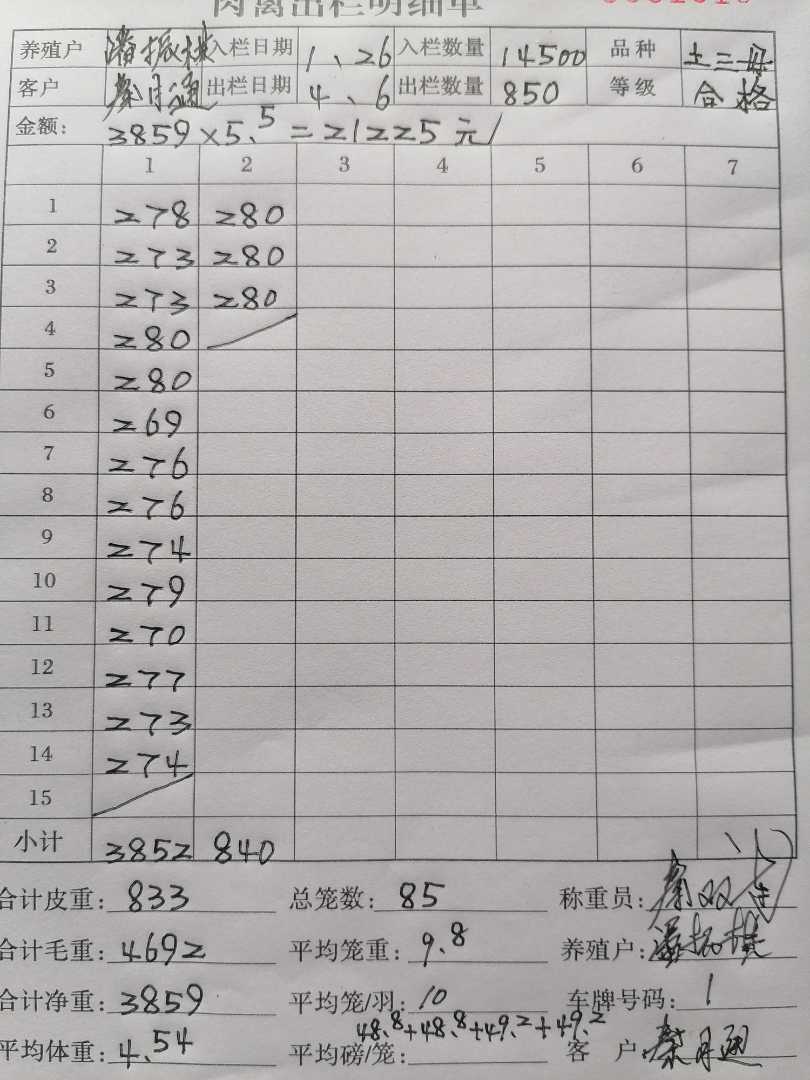 肉禽出栏明细单
养殖户 潘振棋 入栏日期 1、26 入栏数量 14500 品种 土三母
客户 秦月通 出栏日期 4、6 出栏数量 850 等级 合格
金额: 3859×5.5=21225元/
1 2 3 4 5 6 7
1 278 280
2 273 280
3 273 280
4 280
5 280
6 269
7 276
8 276
9 274
10 279
11 270
12 277
13 273
14 274
15
小计 3852 840
合计皮重: 833 总笼数: 85 称重员: 秦双
合计毛重: 4692 平均笼重: 9.8 养殖户: 潘振棋
合计净重: 3859 平均笼/羽: 10 车牌号码: 1
48.8+48.8+49.2+49.2
平均体重: 4.54 平均磅/笼: 客 户: 秦月通